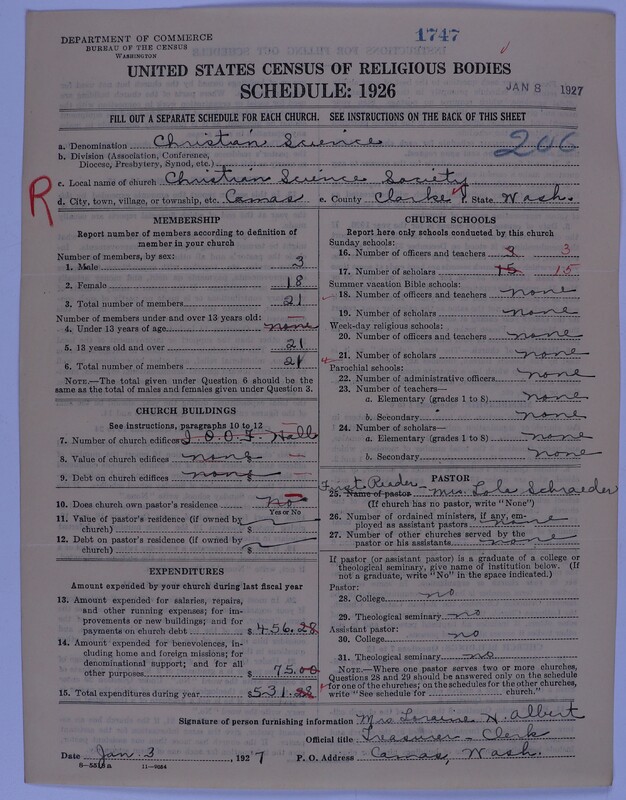 DEPARTMENT OF COMMERCE
BUREAU OF THE CENSUS
WASHINGTON
1747
UNITED STATES CENSUS OF RELIGIOUS BODIES
SCHEDULE: 1926
JAN 8 1927
FILL OUT A SEPARATE SCHEDULE FOR EACH CHURCH. SEE INSTRUCTIONS ON THE BACK OF THIS SHEET
206
a. Denomination Christian Science
b. Division (Association, Conference, Diocese, Presbytery, Synod, etc.)
c. Local name of church Christian Science Society
R
d. City, town, village, or township, etc. Camas e. County Clarke f. State Wash.
MEMBERSHIP
Report number of members according to definition of
member in your church
Number of members, by sex:
1. Male 3
2. Female 18
3. Total number of members 21
Number of members under and over 13 years old:
4. Under 13 years of age none
5. 13 years old and over 21
6. Total number of members 21
NOTE.—The total given under Question 6 should be
the same as the total of males and females given under Question 3.
CHURCH BUILDINGS
See instructions, paragraphs 10 to 12
7. Number of church edifices I.O.O.F. Hall
8. Value of church edifices none
9. Debt on church edifices none
10. Does church own pastor's residence No
Yes or No
11. Value of pastor's residence (if owned by
church) $
12. Debt on pastor's residence (if owned by
church) $
EXPENDITURES
Amount expended by your church during last fiscal year
13. Amount expended for salaries, repairs,
and other running expenses; for im-
provements or new buildings; and for
payments on church debt $456.28
14. Amount expended for benevolences, in-
cluding home and foreign missions; for
denominational support; and for all
other purposes $75.00
15. Total expenditures during year $531.28
CHURCH SCHOOLS
Report here only schools conducted by this church
Sunday schools:
16. Number of officers and teachers 3 3
17. Number of scholars 15 15
Summer vacation Bible schools:
18. Number of officers and teachers none
19. Number of scholars none
Week-day religious schools:
20. Number of officers and teachers none
21. Number of scholars none
Parochial schools:
22. Number of administrative officers none
23. Number of teachers—
a. Elementary (grades 1 to 8) none
b. Secondary none
24. Number of scholars—
a. Elementary (grades 1 to 8) none
b. Secondary none
PASTOR
First Reader
25. Name of pastor Mrs Lola Schraeder
(If church has no pastor, write "None")
26. Number of ordained ministers, if any, em-
ployed as assistant pastors none
27. Number of other churches served by the
pastor or his assistants none
If pastor (or assistant pastor) is a graduate of a college or
theological seminary, give name of institution below. (If
not a graduate, write "No" in the space indicated.)
Pastor:
28. College no
29. Theological seminary no
Assistant pastor:
30. College no
31. Theological seminary no
NOTE.—Where one pastor serves two or more churches,
Questions 28 and 29 should be answered only on the schedule
for one of the churches; on the schedules for the other churches,
write "See schedule for church."
Signature of person furnishing information Mrs Loraine H. Albert
Official title Treasurer - Clerk
Date Jan 3, 1927 P. O. Address Camas, Wash.
8-5518a 11-9584